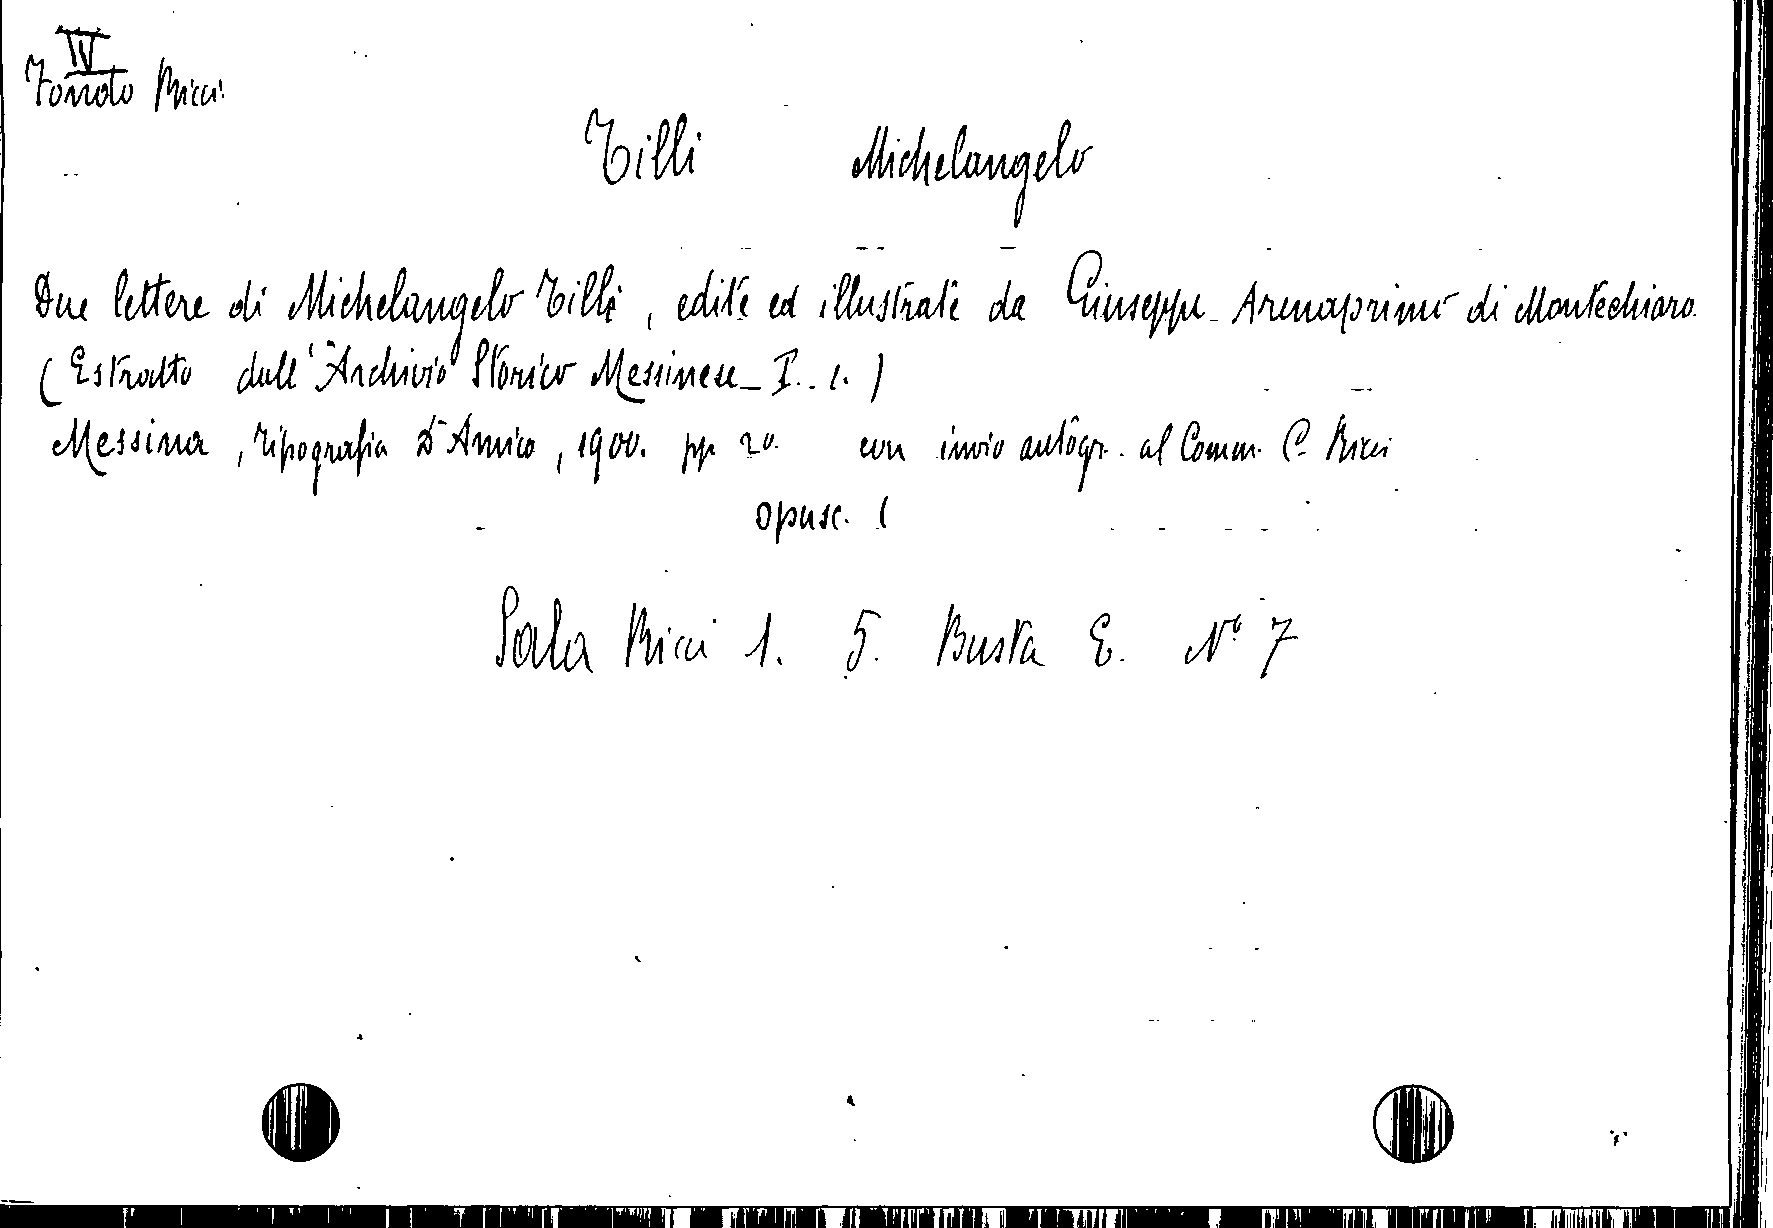 IV
Fondo Ricci
Tilli Michelangelo
Due lettere di Michelangelo Tilli, edite ed illustrate da Giuseppe Arenaprimo di Montechiaro.
(Estratto dall'"Archivio Storico Messinese_ I. 1.)
Messina, Tipografia D'Amico, 1900. pp. 20. con invio autogr. al Comm. C. Ricci
opusc. 1
Sala Ricci 1. 5. Busta E. N° 7